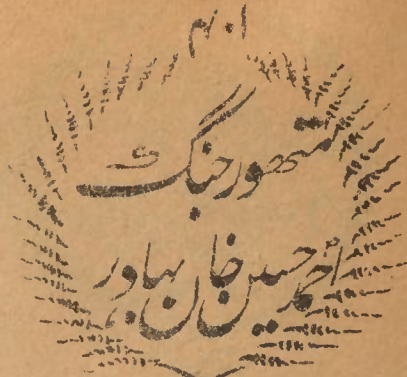 متھور جنگ
احمد حسین خان بہادر